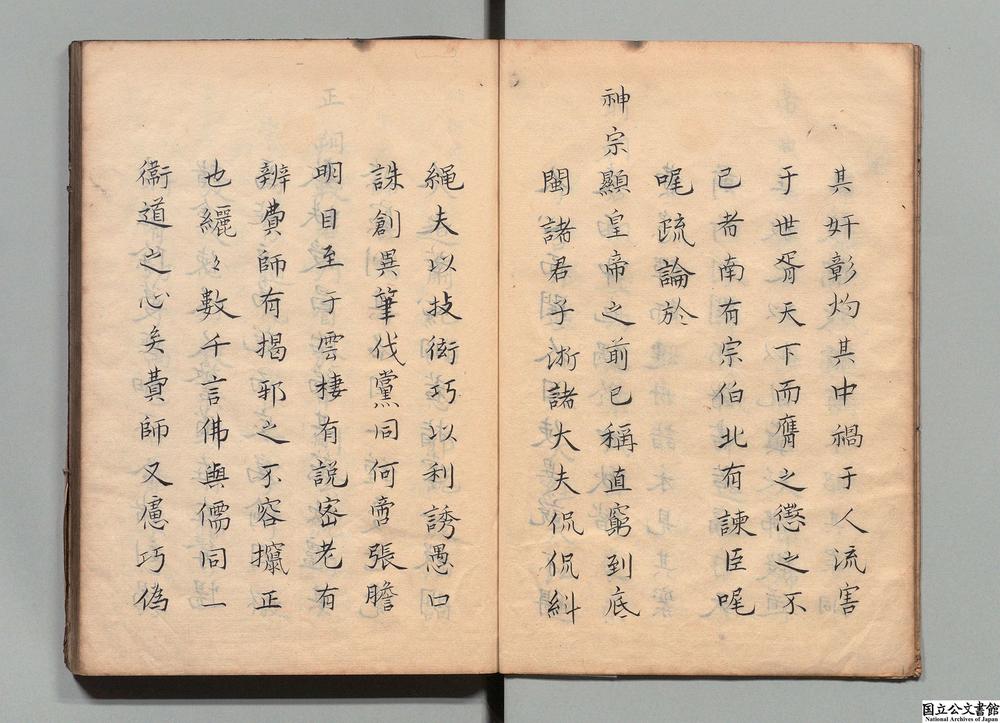 其奸彰灼其中禍于人流害
于世胥天下而膺之懲之不
已者南有宗伯北有諫臣喔
喔疏論於
神宗顯皇帝之前已稱直窮到底
閩諸君子浙諸大夫侃侃糾
繩夫以技術巧以利誘愚口
誅創異筆伐黨同何啻張膽
明目至于雲棲有說密老有
辨費師有揭邪之不容攛正
也纚々數千言佛與儒同一
衞道之心矣費師又慮巧偽
国立公文書館
National Archives of Japan